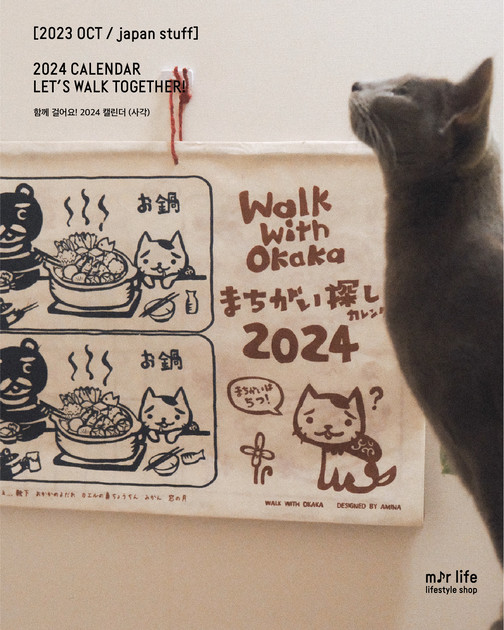 [2023 OCT / japan stuff]
2024 CALENDAR
LET'S WALK TOGETHER!
함께 걸어요! 2024 캘린더 (사각)
お鍋
Walk
with
Okaka
まちがい探し
カレン
2024
お鍋
まちがいは
5つ!
?
靴下 おかかのよだれ カエルの鼻ちょうちん みかん 窓の月
WALK WITH OKAKA DESIGNED BY AMINA
m♪r life
lifestyle shop